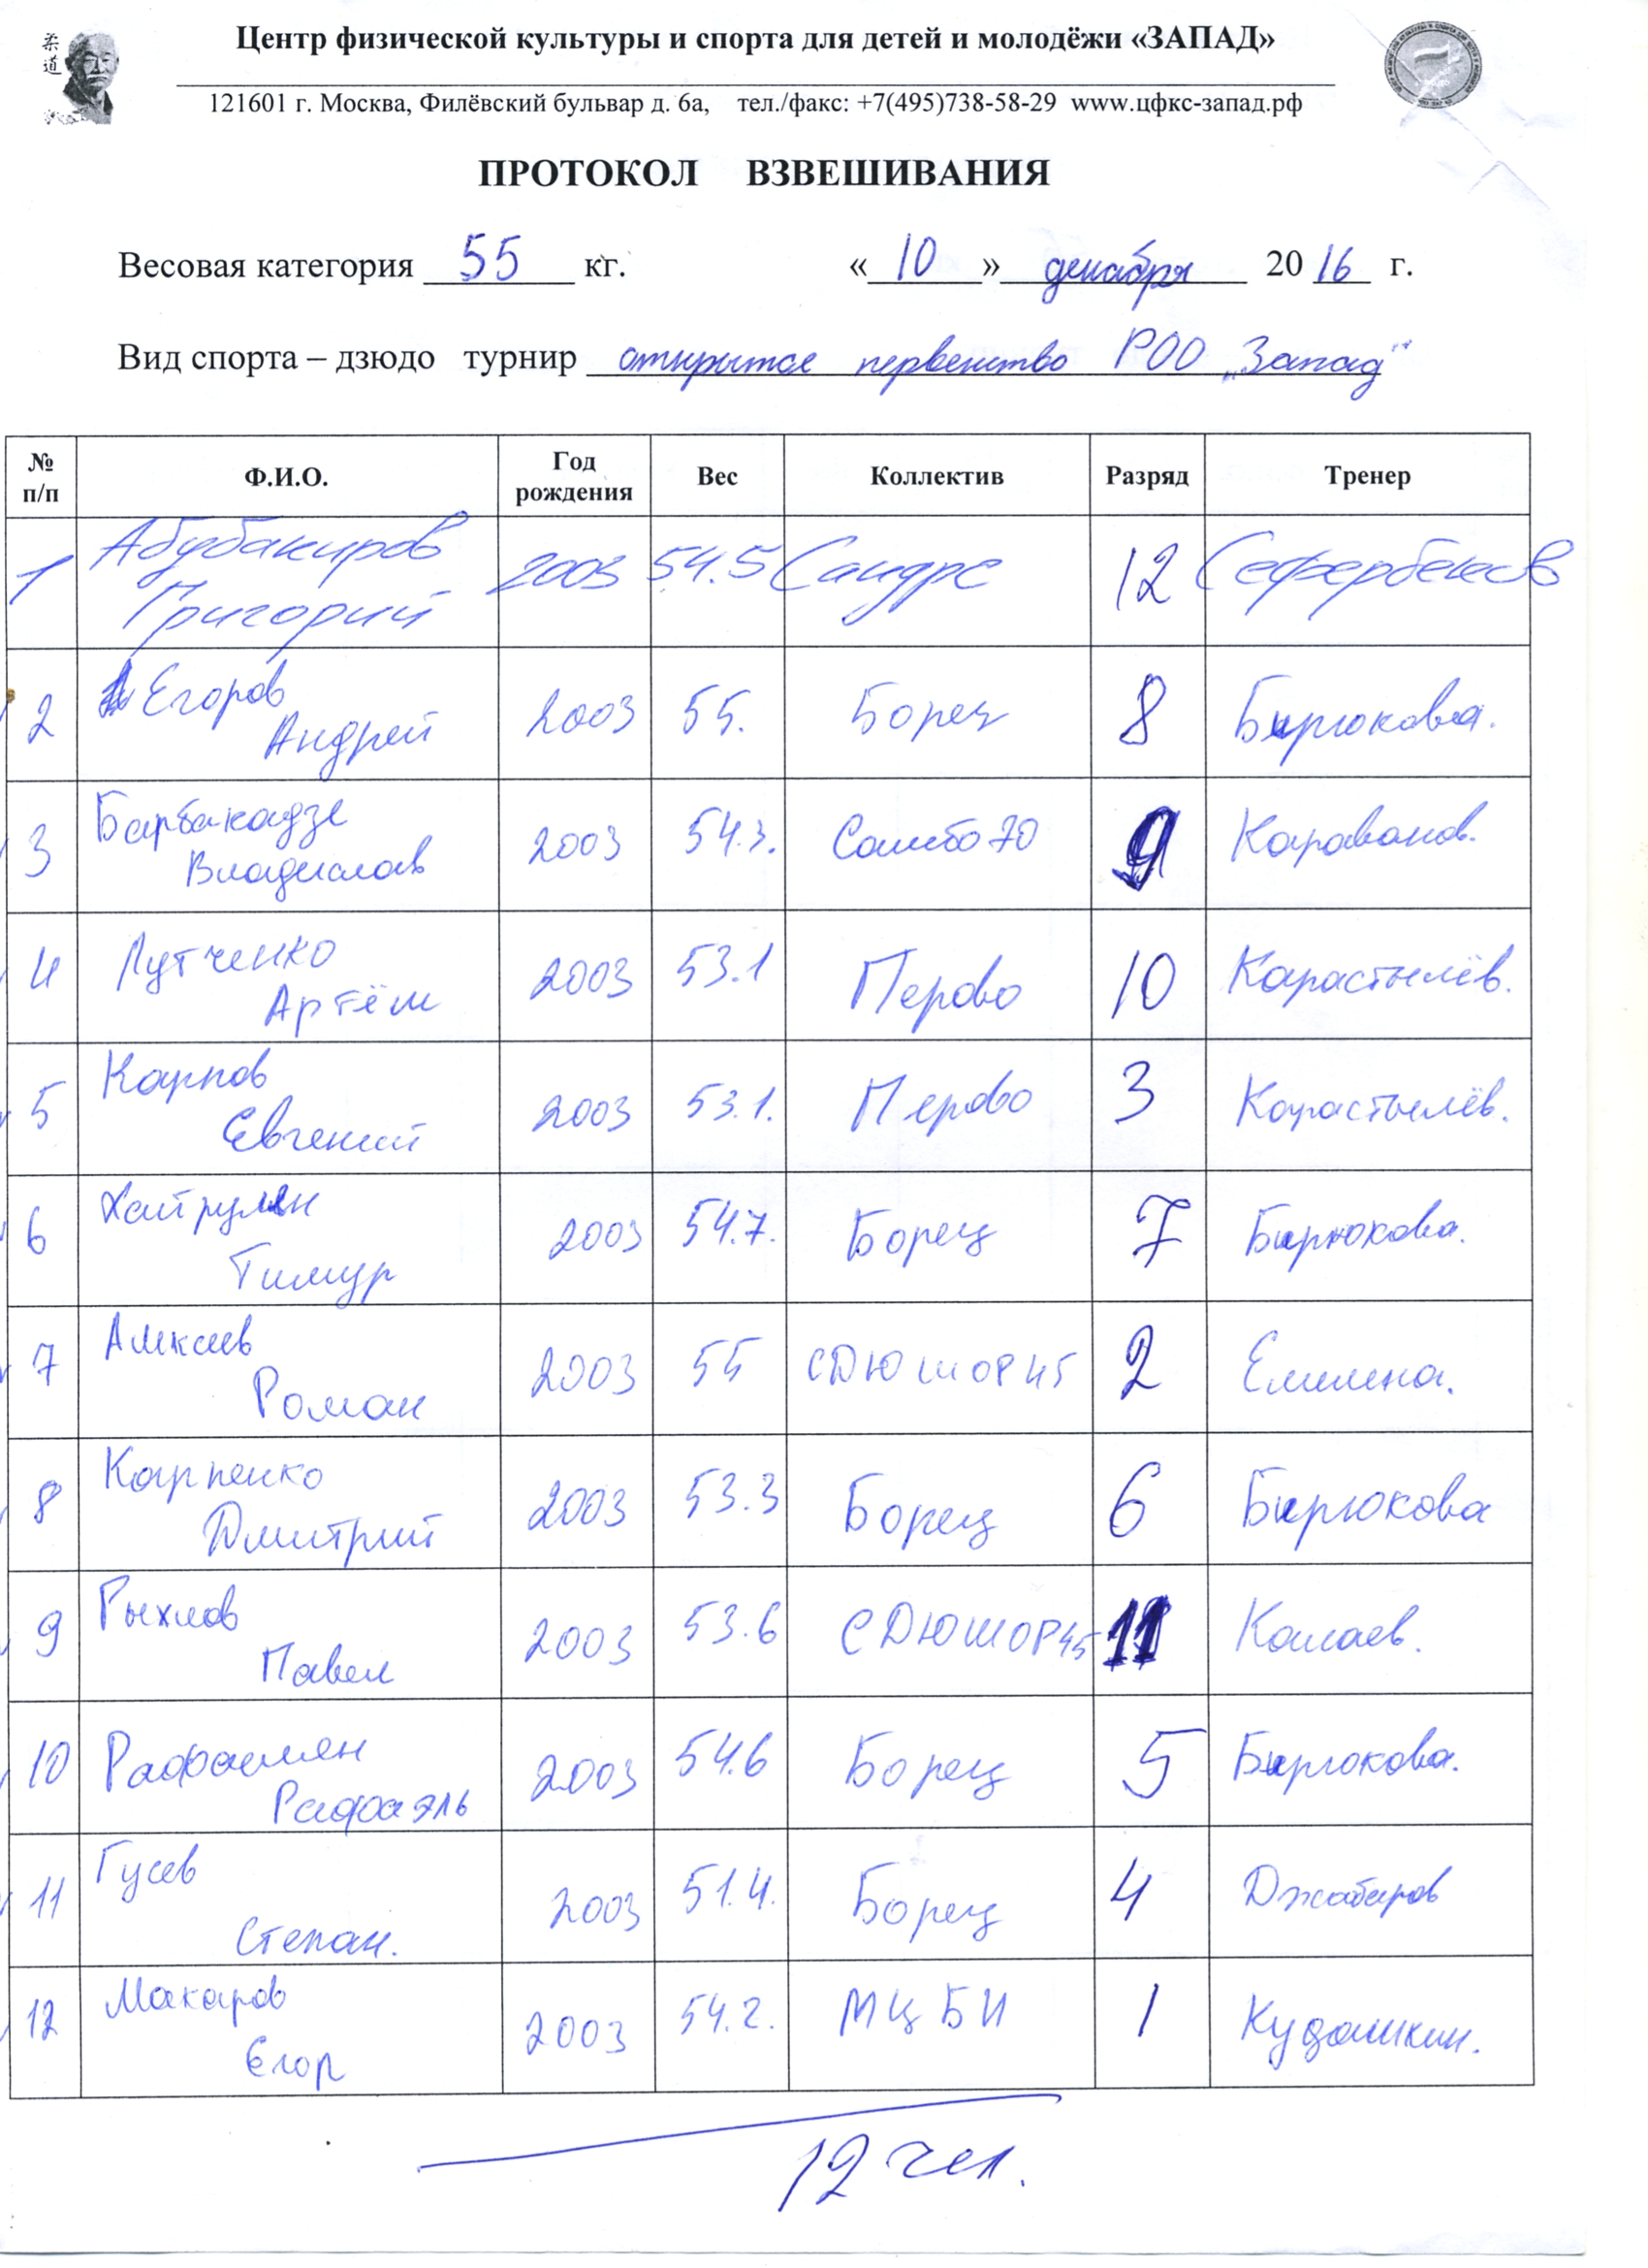 柔道
Центр физической культуры и спорта для детей и молодёжи «ЗАПАД»
121601 г. Москва, Филёвский бульвар д. 6а, тел./факс: +7(495)738-58-29 www.цфкс-запад.рф
ПРОТОКОЛ ВЗВЕШИВАНИЯ
Весовая категория 55 кг. «10» декабря 2016 г.
Вид спорта – дзюдо турнир открытое первенство РОО „Запад"
№ п/п Ф.И.О. Год рождения Вес Коллектив Разряд Тренер
1 Абубакиров Григорий 2003 54.5 Сандре 12 Сефербеков
2 Егоров Андрей 2003 55. Борец 8 Бирюкова.
3 Барбакадзе Владислав 2003 54.3. Самбо 70 9 Караванов.
4 Лутченко Артём 2003 53.1 Перово 10 Карастылёв.
5 Карпов Евгений 2003 53.1. Перово 3 Карастылёв.
6 Хайрулин Тимур 2003 54.7. Борец 7 Бирюкова.
7 Роман 2003 55 СДЮШОР 45 2 Емелина.
8 Карпенко Дмитрий 2003 53.3 Борец 6 Бирюкова
9 Рыхлов Павел 2003 53.6 СДЮШОР 45 11 Калаев.
10 Рафаелян Рафаэль 2003 54.6 Борец 5 Бирюкова.
11 Гусев Степан. 2003 51.4. Борец 4 Джабаров
12 Макаров Егор 2003 54.2. МЦБИ 1 Кудашкин.
12 чел.